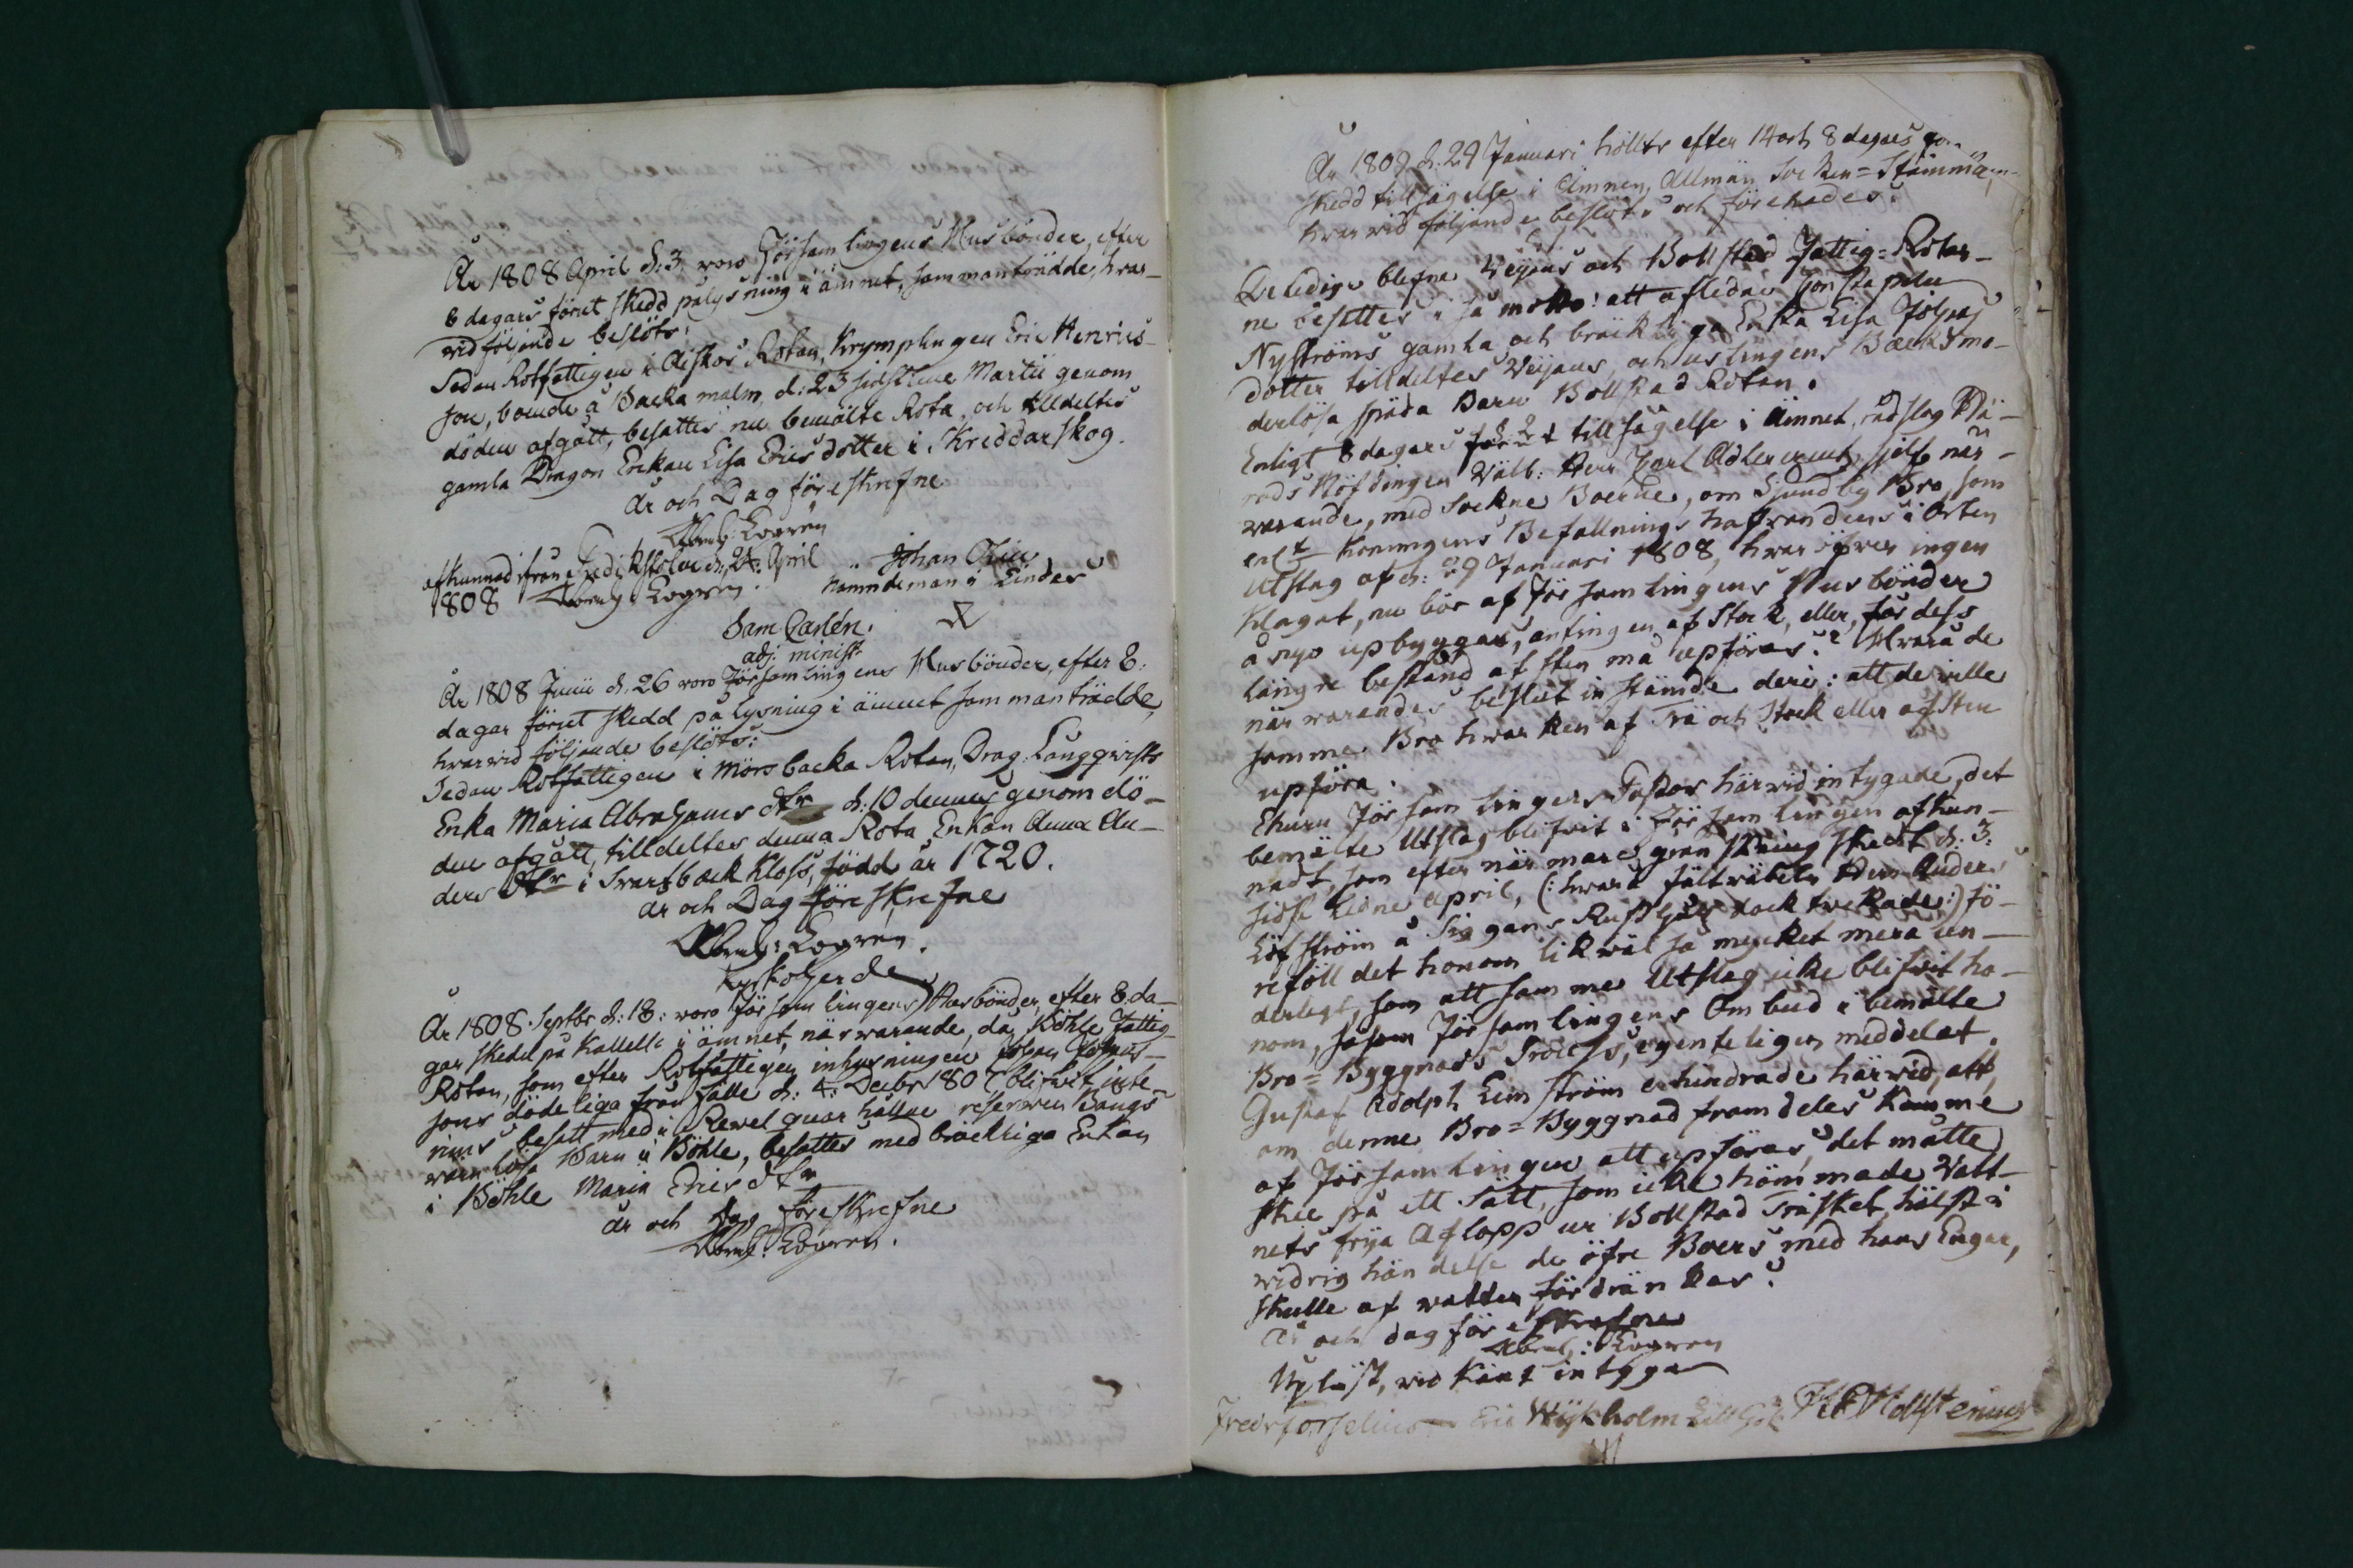 År 1808 April d: 3 woro Församlingens Husbönder, efter
8 dagars förut skedd pålysning i ämnet, sammanträdde, hvar-
vid följande beslöts:
Sedan Rotfattigen i Rotan, Krymplingen Eric Henrics-
son, boende å Backa malm, d: 23 sidstledne Martii genom
döden afgått, besattes nu bemälte Rota, och tilldeltes
gamla Dragon Enkan Lisa Ericsdotter i Skreddarskog.
År och Dag föreskrefne
Abrah: Logren
afkunnad ifrån Predikstolen d: 24 April
1808 Abrah: Logren.
Johan
Nämndeman i Linders
Sam Carlén.
adj: minist:
År 1808 Junii d. 26 woro Församlingens Husbönder, efter 8.
dagar förut skedd pålysning i ämnet sammanträdde,
hvarvid följande beslöts:
Sedan Rotfattigen i Mörsbacka Rotan, Drag: Långqwists
Enka Maria Abrahams dtr d: 10 dennes genom dö-
den afgått, tilldeltes denna Rota Enkan Anna An-
ders dtr i Svartback Kloss, född år 1720.
År och Dag föreskrefne
Abrah: Logren.
Kyrkoherde
År 1808. Septbr d: 18: woro Församlingens Husbönder, efter 8. da-
gar skedd på kallelse i ämnet, närwarande, då Böhle Fattig-
Rotan, som efter Rotfattigen inhysningen Johan Johans-
sons dödeliga frånfälle d: 4 Decbr 1807 blifwit
besatt med i Rewel quarhållne reserven Bangs
wärnlösa Barn i Böhle, besattes med bräckliga Enkan
i Böhle Maria Erics dtr
År och Dag föreskrefne
Abrah: Logren.
År 1809 d. 29 Januari hölts efter 14 och 8 dagars
skedd tillsägelse i ämnen, Allmän Socken-Stämma,
hvarvid följande beslöts och förehades:
Lediga blefne Veijans och Bollstad Fattig-Rotar-
ne besattes i så motto: att aflidne
Nyströms gamla och bräckliga Enka Lisa Johans
dotter tilldeltes Veijans, och uslingens Bäcks mo-
derlösa späda Barn Bollstad Rotan.
Enligt 8 dagars förut tillsägelse i ämnet, rådslog Hä-
rads Höfdingen Välb: Herr Carl Adlercreutz, sjelf när-
warande, med Sockne Boerne, om Sjundby Bro, som
enl:t Konungens Befallningshafwandens i Orten
Utslag af d: 29 Januari 1808, hwaröfver ingen
klagat, nu bör af Församlingens Husbönder
å nyo upbyggas, antingen af Stock, eller, för dess
längre bestånd af sten må upföras? Hvarå de
närwarandes beslut instämde deri: att de wille
samma Bro hwarken af Trä och Stock eller af Sten
upföra.
Ehuru Församlingens Pastor härwid intygade, det
bemälte Utslag blifvit i Församlingen afkun-
nadt, som efter närmare granskning skedt d: 3:
sidstledne April, (: hwarå fältwäbeln Herr Ander
Löfström å Siggans Rusthåll dock twekade :) fö-
reföll det honom likwäl så mycket mera un-
derligt, som att samma Utslag icke blifwit ho-
nom, såsom Församlingens Ombud i bemälte
Bro-Byggnads Process, egenteligen meddelat.
Gustaf Adolph Limström erhindrade härwid, att
om denne Bro-Byggnad framdeles komme
af Församlingen att upföras, det måtte
skie på ett sätt, som icke hämmade Vatt-
nets frija Aflopp ur Bollstad Träsket, hälst i
widrig händelse de öfre Boers med hans Engar,
skulle af vatten fördränkas.
År och dag föreskrefne
Abrah: Logren
Upläst, wid känt intyga
Fredr Forselius Eric Wijkholm Holstenius